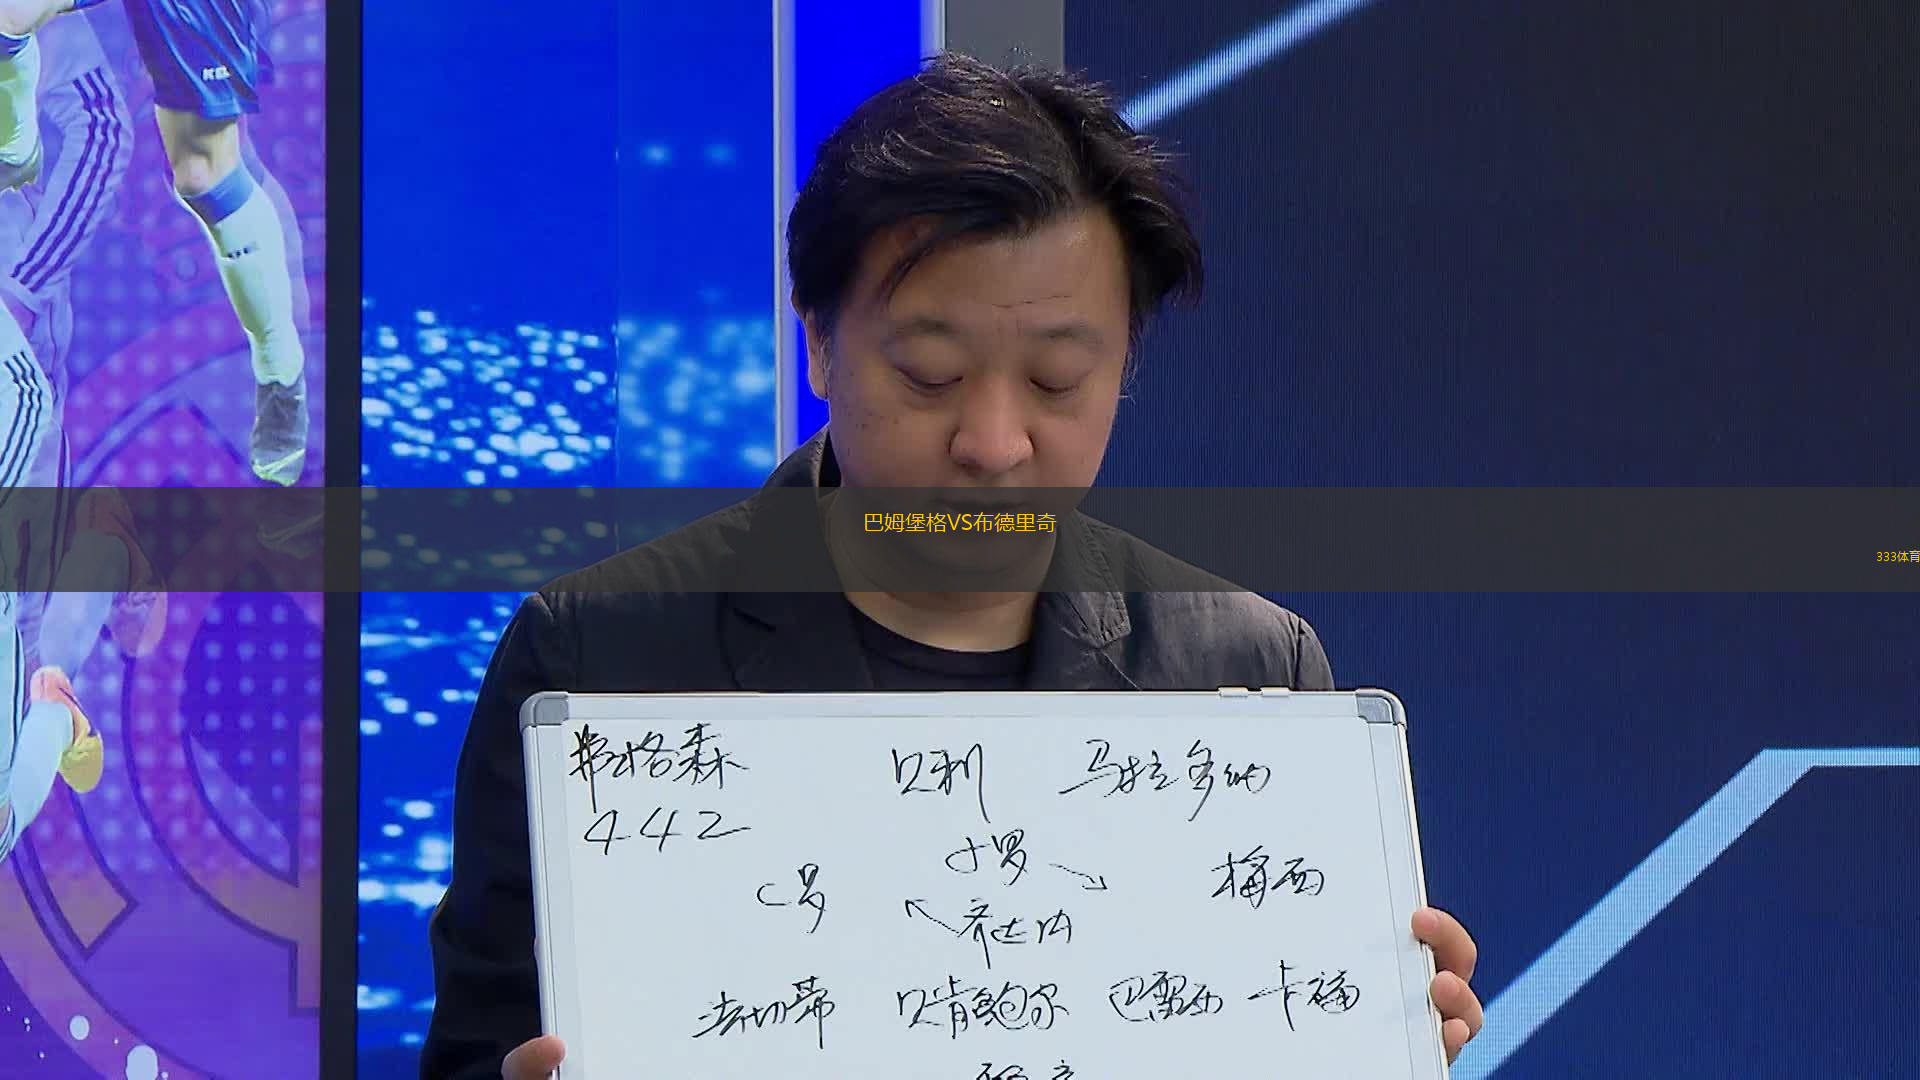 KEL
巴姆堡格VS布德里奇
333体育
弗格森 贝利 马拉多纳
442
小罗
C罗 梅西
齐达内
法切蒂 贝肯鲍尔 巴雷西 卡福